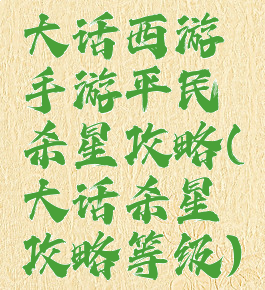 大话西游
手游平民
杀星攻略(
大话杀星
攻略等级)